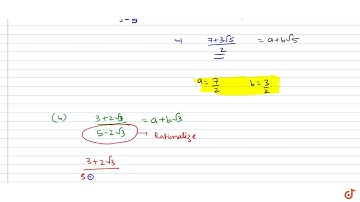 ⇒ 7+3√5 / 2 = a+b√5
a = 7/2 b = 3/2
(b) 3+2√3 / 5-2√3 = a+b√3
→ Rationalize
3+2√3
5